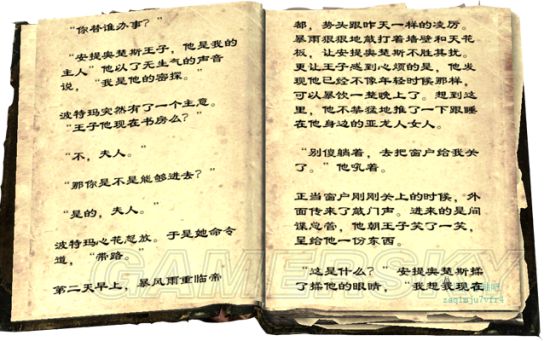 “你替谁办事？”
“安提奥楚斯王子，他是我的
主人”他以了无生气的声音
说，“我是他的密探。”
波特玛突然有了一个主意。
“王子他现在书房么？”
“不，夫人。”
“那你是不是能够进去？”
“是的，夫人。”
波特玛心花怒放。于是她命令
道，“带路。”
第二天早上，暴风雨重临帝
都，势头跟昨天一样的凌厉。
暴雨狠狠地敲打着墙壁和天花
板，让安提奥楚斯不胜其扰。
更让王子感到心烦的是，他发
现他已经不像年轻时候那样，
可以暴饮一整晚上了。想到这
里，他不禁猛地推了一下跟睡
在他身边的亚龙人女人。
“别傻躺着，去把窗户给我关
了。”他吼着。
正当窗户刚刚关上的时候，外
面传来了敲门声。进来的是间
谍总管，他朝王子笑了一笑，
呈给他一份东西。
“这是什么？”安提奥楚斯揉
了揉他的眼睛，“我想我现在
GAMERSKY
zaq1mju7vfr4